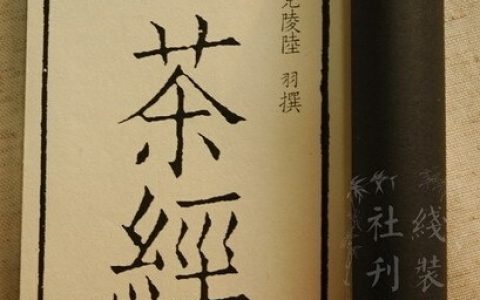 线装
社刊
陵陸 羽撰
茶經